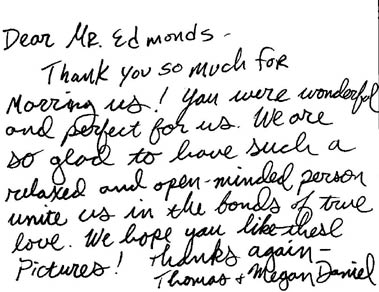 Dear Mr. Edmonds -
Thank you so much for
Marring us! You were wonderful
and perfect for us. We are
so glad to have such a
relaxed and open-minded person
unite us in the bonds of true
love. We hope you like these
Pictures! Thanks again -
Thomas & Megan Daniel